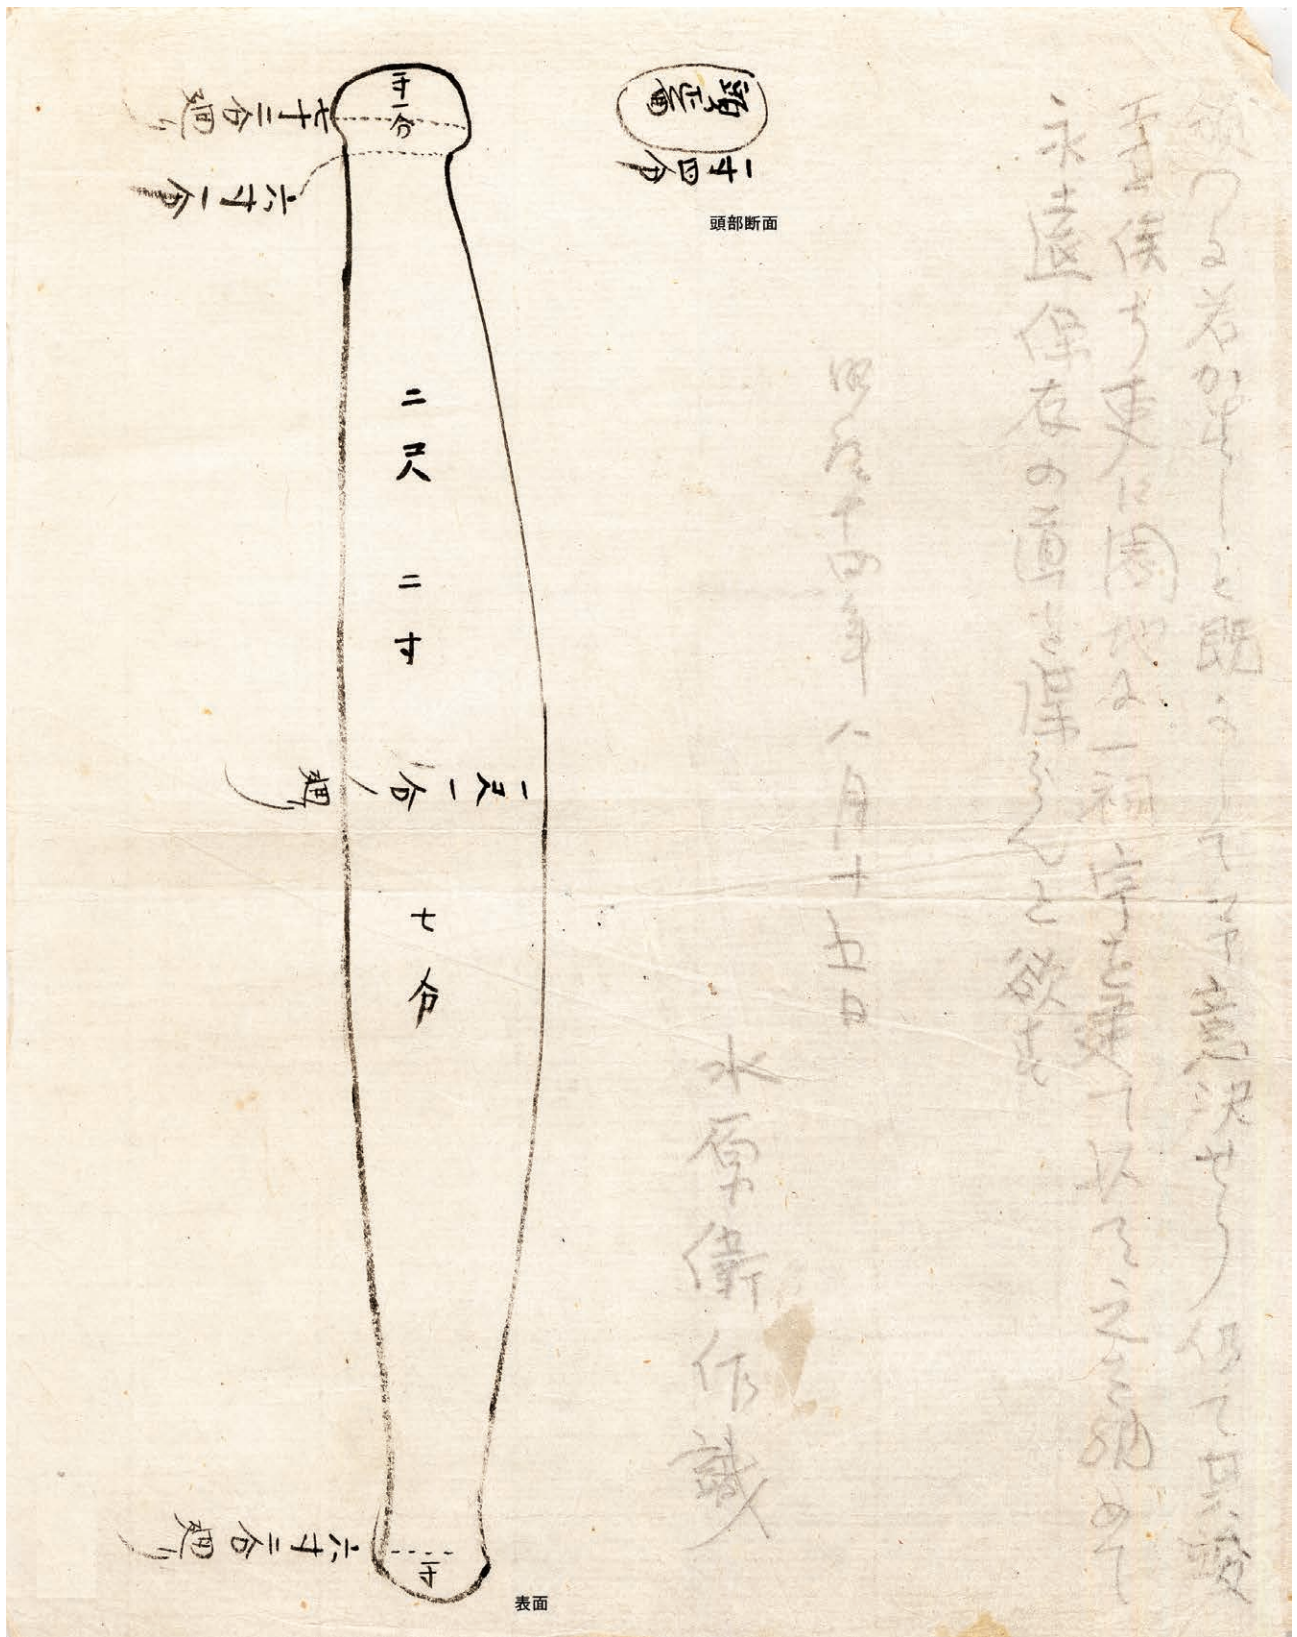 領つる者かましと既にして予意決せり仍て其竣
工を俟ち更に園地に一祠宇を建て以て之を納めて
永遠保存の道を謀らんと欲す
明治十四年八月十五日
水原衛作識
頭正面
一寸四分
頭部断面
一寸一分
七寸二分廻り
六寸一分
二尺二寸七分
一尺一分廻り
六寸二分廻り
一寸
表面